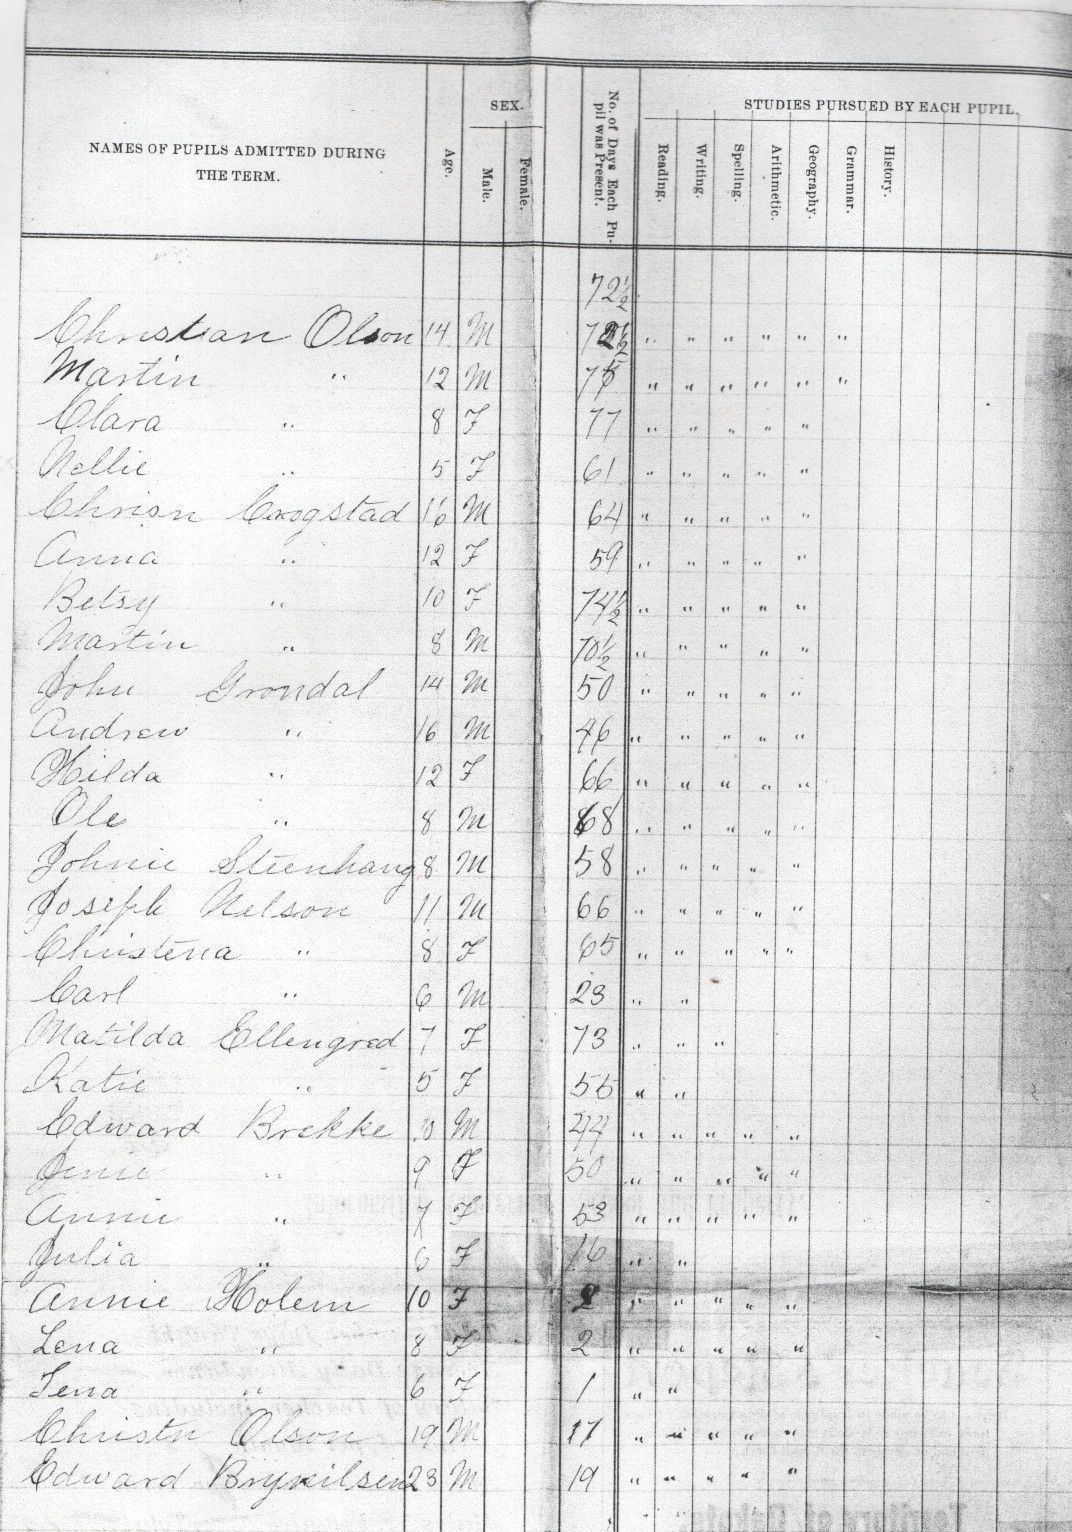 SEX.
STUDIES PURSUED BY EACH PUPIL.
NAMES OF PUPILS ADMITTED DURING
THE TERM.
Age.
Male.
Female.
No. of Days Each Pu-
pil was Present.
Reading.
Writing.
Spelling.
Arithmetic.
Geography.
Grammar.
History.
72½
Christian Olson 14 M 72½ " " " " " "
Martin " 12 M 75 " " " " " "
Clara " 8 F 77 " " " " "
Nellie " 5 F 61 " " " " "
Chrisn Crogstad 16 M 64 " " " " "
Anna " 12 F 59 " " " " "
Betsy " 10 F 74½ " " " " "
Martin " 8 M 70½ " " " " "
John Grondal 14 M 50 " " " " "
Andrew " 16 M 46 " " " " "
Hilda " 12 F 66 " " " " "
Ole " 8 M 68 " " " " "
Johnie Steenhaug 8 M 58 " " " " "
Joseph Nelson 11 M 66 " " " " "
Christena " 8 F 65 " " " " "
Carl " 6 M 23 " "
Matilda Ellengred 7 F 73 " " "
Katie " 5 F 55 " "
Edward Brekke 10 M 44 " " " " "
Jenie " 9 F 50 " " " " "
Annie " 7 F 53 " " " " "
Julia " 6 F 16 " "
Annie Holem 10 F 2 " " " " "
Lena " 8 F 2 " " " " "
Tena " 6 F 1 " "
Christn Olson 19 M 17 " " " " "
Edward 23 M 19 " " " " "
Territory of Dakota